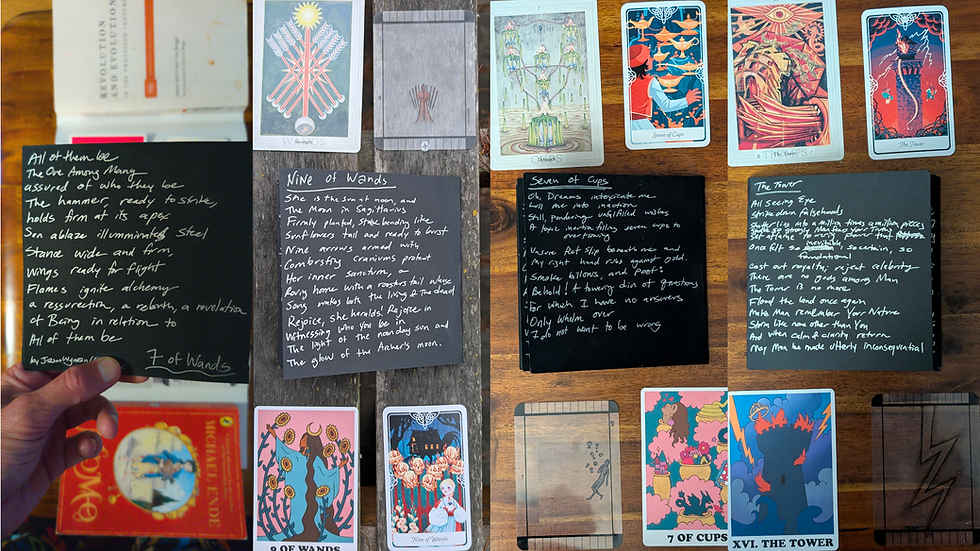 REVOLUTION
AND EVOLUTION
All of them be
The One Among Many
assured of who they be
The hammer, ready to strike,
holds firm at its apex
Son ablaze illumminated Steel
Stance wide and firm,
wings ready for flight
Flames ignite alchemy
a ressurection, a rebirth, a revelation
of Being in relation to
All of them be
by
7 of Wands
MICHAEL ENDE
MOMO
Strength
Nine of Wands
She is the sun at noon, and
The Moon in Sagittarius
Firmly planted, bending like
Sunflowers tall and ready to burst
Nine arrows armed with
craniums protect
Her inner sanctum, a
home with a roosters tail whose
Song makes both the living & the dead
Rejoice, She heralds! Rejoice in
Witnessing who you be in
The light of the noonday sun and
The glow of the Archer's moon.
9 OF WANDS
Nine of Wands
7
Debauch
Seven of Cups
Seven of Cups
Oh, Dreams intoxicate me
Lull me into inaction
Still, pondering unfulfilled wishes
A toxic inertia filling seven cups to
overflowing
Unsure Rot Slip beneath me and
My right hand rubs against gold.
Smoke billows, and Poof!
Behold! A towering din of questions
For which I have no answers
Only Whelm over
I do not want to be wrong
7 OF CUPS
The Tower
The Tower
The Tower
All Seeing Eye
Strike down falsehoods
Shatter me into a million times a million pieces
so strongly Manifest your Truths
Set aflame to every part that
Once felt so inevitable, so certain, so
foundational
Cast out royalty, reject celebrity
There are no gods among Man
The Tower is no more
Flood the land once again
Make Man remember Your Nature
Storm like none other than You
And when calm & clarity return
May Man be made utterly inconsequential
XVI. THE TOWER